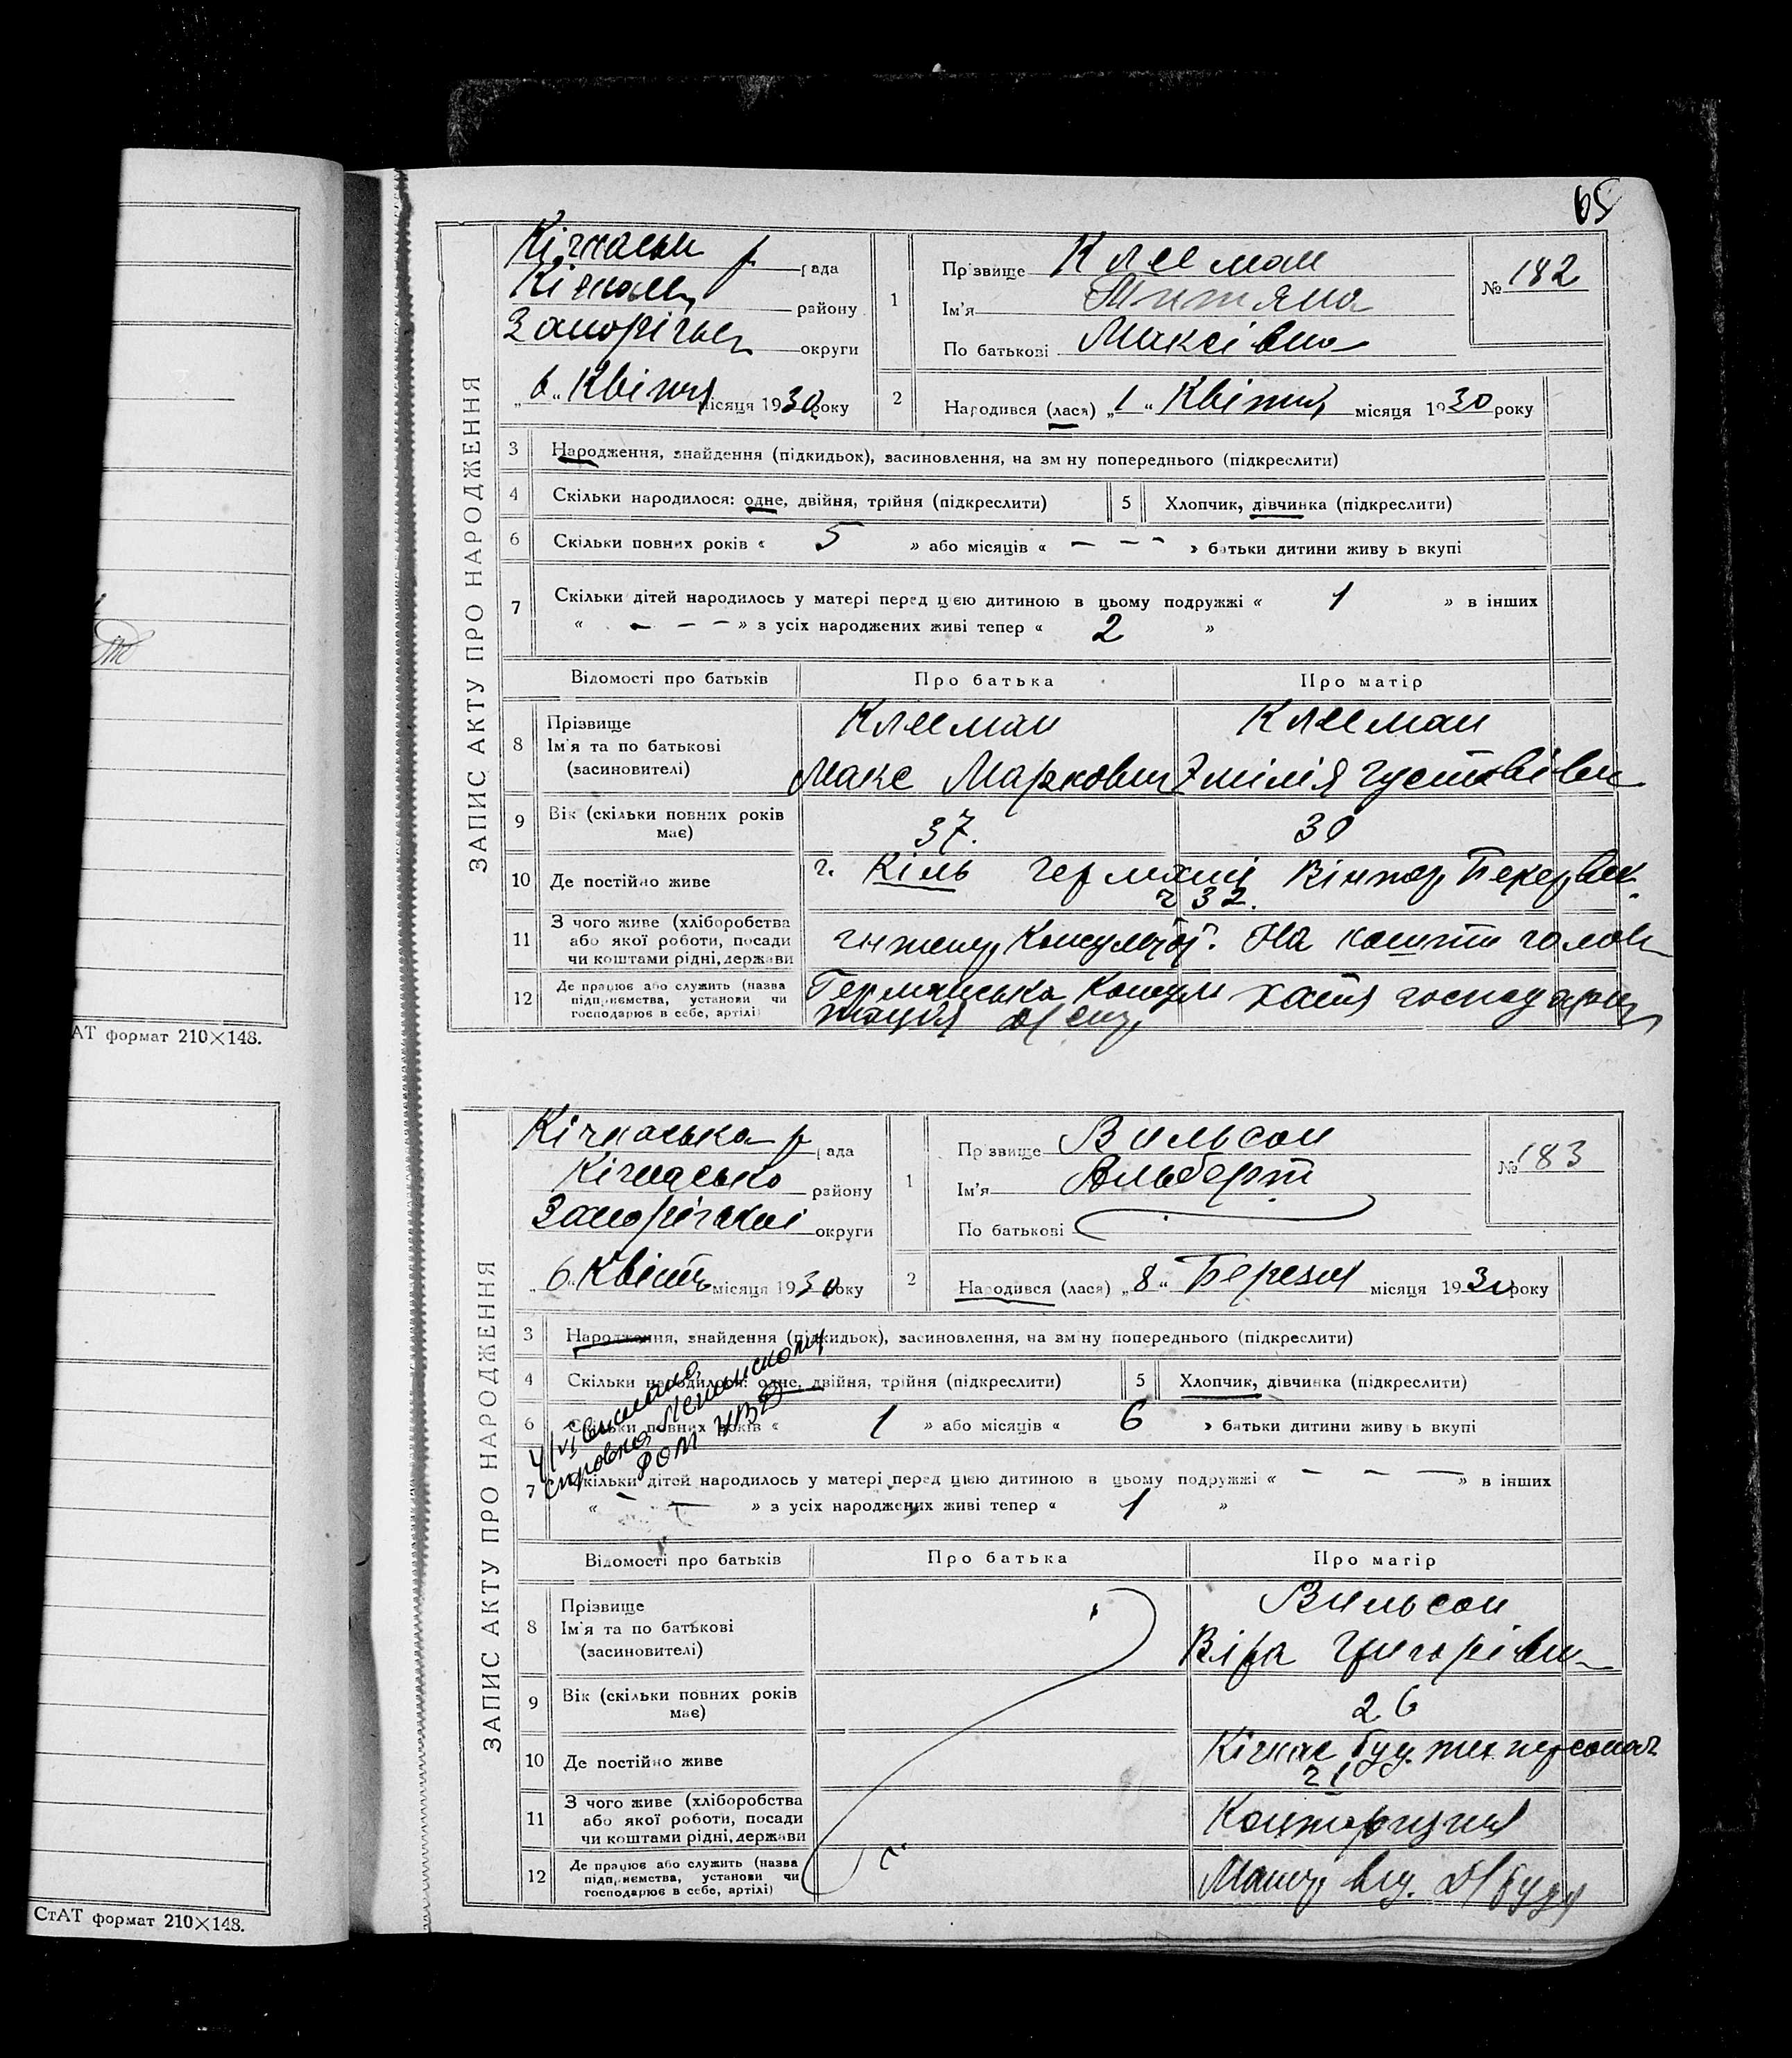 65
ЗАПИС АКТУ ПРО НАРОДЖЕННЯ
рада
району
Запоріськ округи
„6“ Квітня місяця 1930 року
1
Прізвище Клееман
Ім'я Титяна
По батькові Максівна
№ 182
2
Народився (лася) „1“ Квітня місяця 1930 року
3 Народження, знайдення (підкидьок), засиновлення, на зміну попереднього (підкреслити)
4 Скільки народилося: одне, двійня, трійня (підкреслити)
5 Хлопчик, дівчинка (підкреслити)
6 Скільки повних років « 5 » або місяців « — — — » батьки дитини живуть вкупі
7 Скільки дітей народилось у матері перед цією дитиною в цьому подружжі « 1 » в інших
« — — — » з усіх народжених живі тепер « 2 »
Відомості про батьків Про батька Про матір
8 Прізвище
Ім'я та по батькові
(засиновителі)
Клееман
Макс Маркович
Клееман
Эмілія Густавівн
9 Вік (скільки повних років має)
37.
30
10 Де постійно живе
г. Кіль Германії
ч 32.
11 З чого живе (хліборобства
або якої роботи, посади
чи коштами рідні, держави
На кошти голов
12 Де працює або служить (назва
підприємства, установи чи
господарює в себе, артілі)
Германська Консуль
тація
Хатня господарка
АТ формат 210×148.
ЗАПИС АКТУ ПРО НАРОДЖЕННЯ
Кічкаська р рада
Кічкасько району
округи
„6“ Квітн місяця 1930 року
1
Прізвище Вильсон
Ім'я Альберт
По батькові
№ 183
2
Народився (лася) „8“ Березня місяця 1930 року
3 Народження, знайдення (підкидьок), засиновлення, на зміну попереднього (підкреслити)
4 Скільки народилося: одне, двійня, трійня (підкреслити)
5 Хлопчик, дівчинка (підкреслити)
6 Скільки повних років « 1 » або місяців « 6 » батьки дитини живуть вкупі
справка Ленинскому
РОМ УВД
7 Скільки дітей народилось у матері перед цією дитиною в цьому подружжі « — — — » в інших
« — — » з усіх народжених живі тепер « 1 »
Відомості про батьків Про батька Про матір
8 Прізвище
Ім'я та по батькові
(засиновителі)
Вильсон
Віра Григорівн
9 Вік (скільки повних років має)
26
10 Де постійно живе
Кічкас буд. тех. персонал
11 З чого живе (хліборобства
або якої роботи, посади
чи коштами рідні, держави
12 Де працює або служить (назва
підприємства, установи чи
господарює в себе, артілі)
СтАТ формат 210×148.